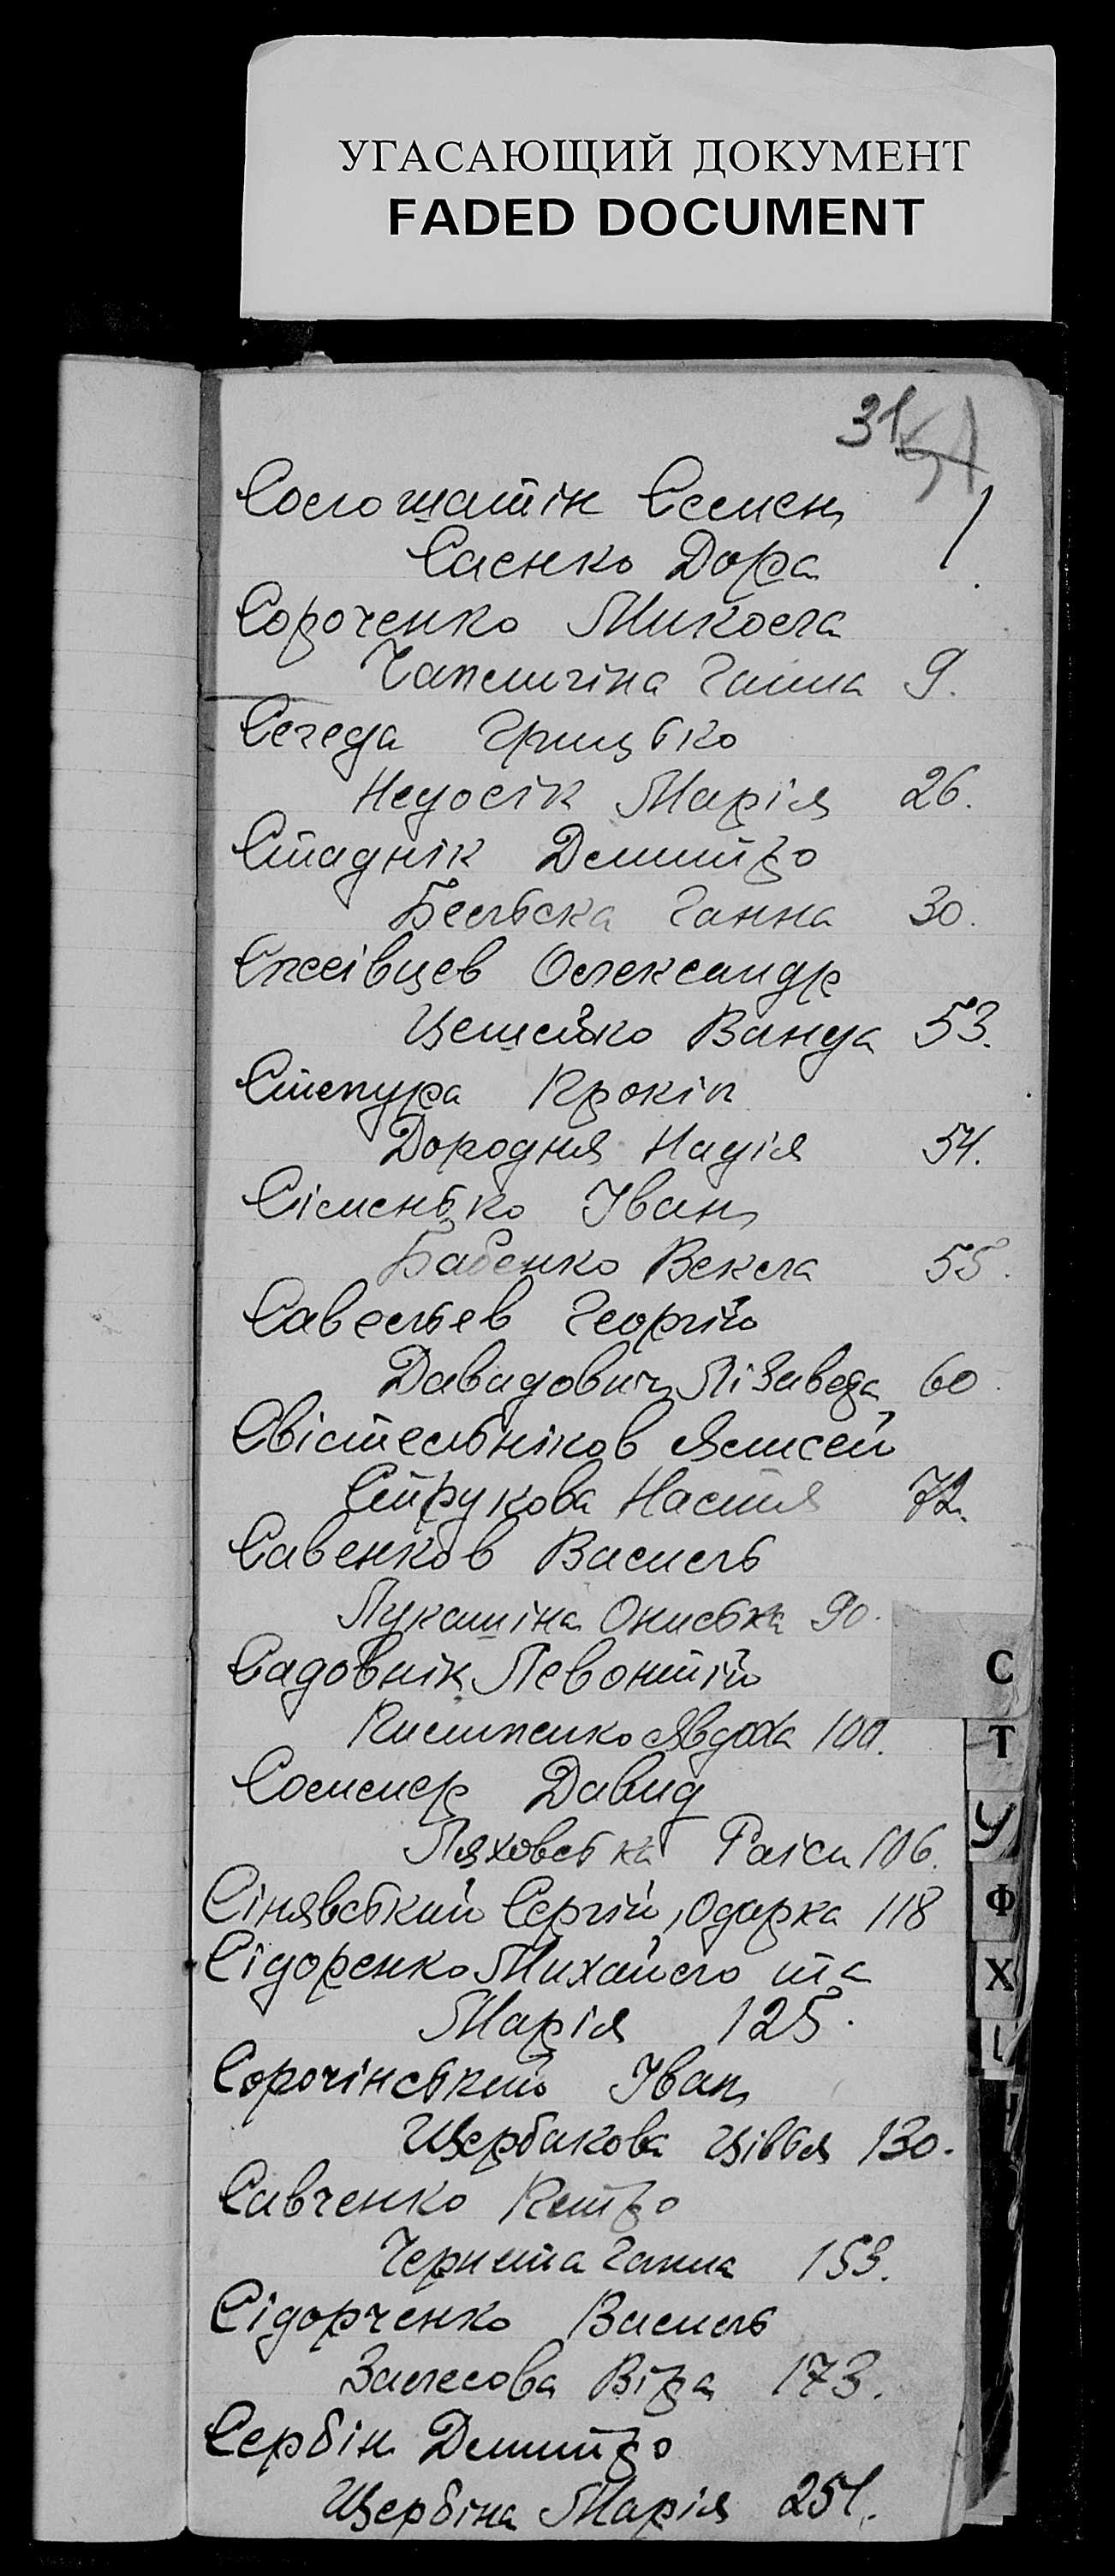 УГАСАЮЩИЙ ДОКУМЕНТ
FADED DOCUMENT
31
Соломатін Семен
Саєнко Дора 1.
Сороченко Микола
Чапелигіна Ганна 9.
Сегеда Грицько
Недосік Марія 26.
Стаднік Демитро
Бельска Ганна 30.
Олександр
Ванда 53.
Степура Прокіп
Дородня Надія 54.
Сіменько Іван
Бабенко Векла 55.
Савельєв Георгій
Давидович Лізавета 60
Свістельніков
Струкова Настя 72.
Савенков Василь
Лукашіна Ониська 90.
Садовнік Левонтій
Явдоха 100.
Соммер Давид
Ляховська Раіса 106.
Сінявський Сергій, Одарка 118
Сідоренко Михайло та
Марія 125.
Сорочінський Іван
Щербакова Цівья 130.
Савченко Петро
Ганна 153.
Сідорченко Василь
Залесова Віра 173.
Сербін Демитро
Щербіна Марія 251.
С
Т
У
Ф
Х